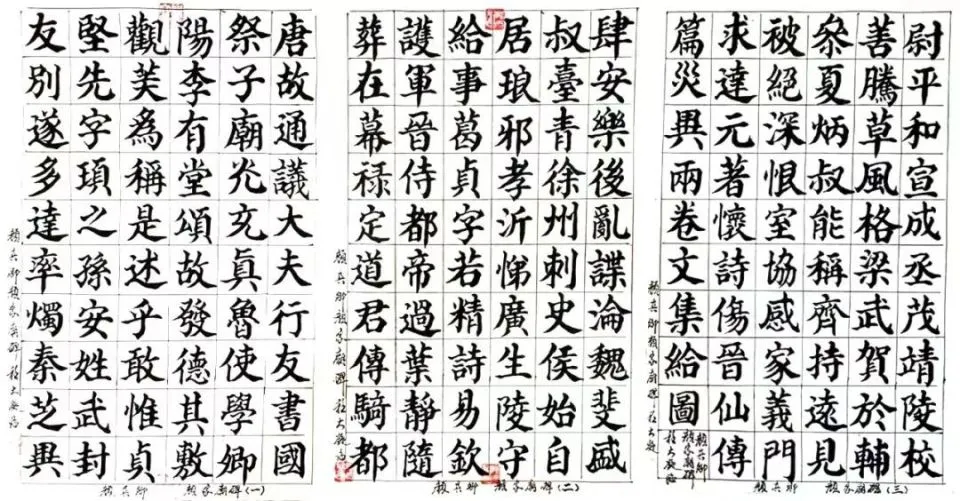 唐故通議大夫行友書國
祭子廟兆充眞魯使學卿
陽李有堂頌故發德其敷
觀芙爲稱是述乎敢惟貞
堅先字項之孫安姓武封
友別遂多達率燭秦芝異
顏真卿 顏家廟碑（一）
肆安樂後亂諜淪魏斐盛
叔臺青徐州刺史侯始自
居琅邪孝沂悌廣生陵守
給事葛貞字若精詩易欽
護軍晉侍都帝過葉靜隨
葬在幕祿定道君傳騎都
顏真卿 顏家廟碑（二）
尉平和宣成丞茂靖陵校
善騰草風格梁武賀於輔
參夏炳叔能稱齊持遠見
被絕深恨室協感家義門
求達元著懷詩傷晉仙傳
篇災異兩卷文集給圖
顏真卿 顏家廟碑（三）